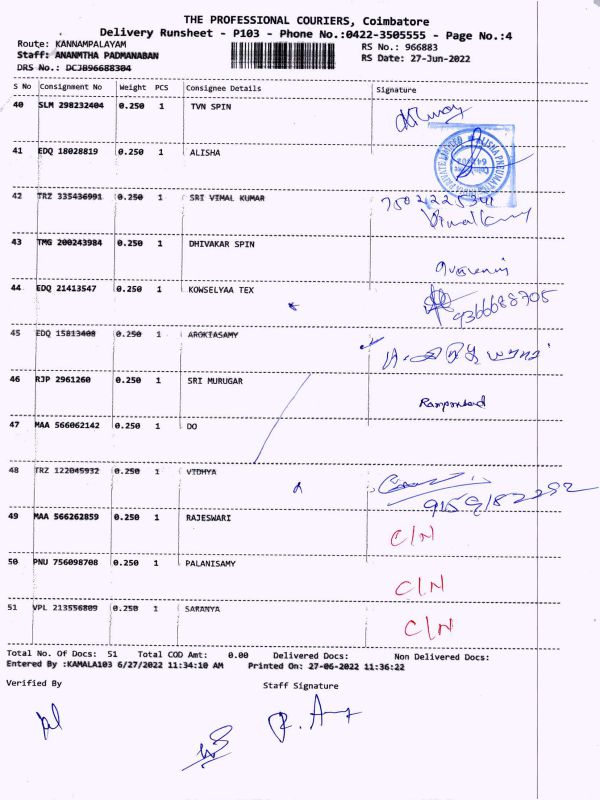 THE PROFESSIONAL COURIERS, Coimbatore
Delivery Runsheet - P103 - Phone No.:0422-3505555 - Page No.:4
Route: KANNAMPALAYAM RS No.: 966883
Staff: ANANMTHA PADMANABAN RS Date: 27-Jun-2022
DRS No.: DCJ896688304
S No Consignment No Weight PCS Consignee Details Signature
40 SLM 298232404 0.250 1 TVN SPIN
41 EDQ 18028819 0.250 1 ALISHA
42 TRZ 335436991 0.250 1 SRI VIMAL KUMAR
Vimalkumar
43 TMG 200243984 0.250 1 DHIVAKAR SPIN
44 EDQ 21413547 0.250 1 KOWSELYAA TEX
9366688705
45 EDQ 15813408 0.250 1 AROKIASAMY
46 RJP 2961260 0.250 1 SRI MURUGAR
47 MAA 566062142 0.250 1 DO
48 TRZ 122045932 0.250 1 VIDHYA
49 MAA 566262859 0.250 1 RAJESWARI C/N
50 PNU 756098708 0.250 1 PALANISAMY C/N
51 VPL 213556809 0.250 1 SARANYA C/N
Total No. Of Docs: 51 Total COD Amt: 0.00 Delivered Docs: Non Delivered Docs:
Entered By :KAMALA103 6/27/2022 11:34:10 AM Printed On: 27-06-2022 11:36:22
Verified By Staff Signature